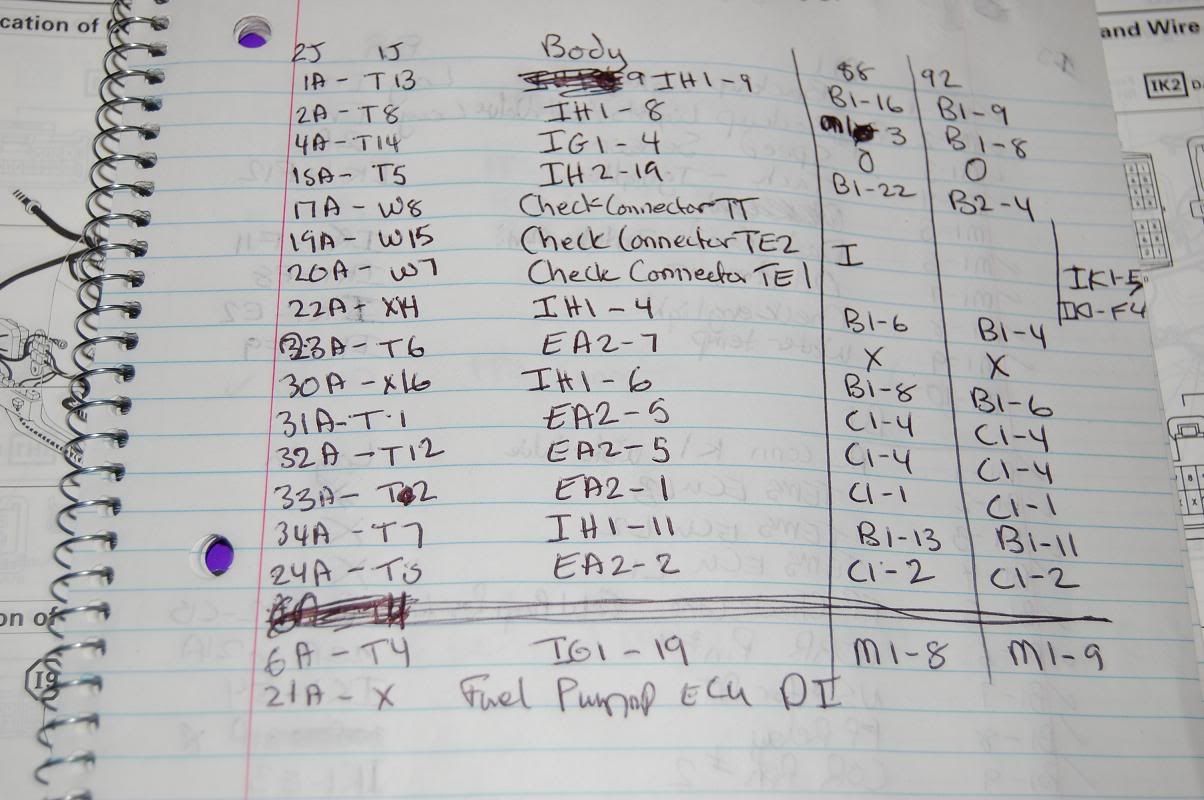 cation of
and Wire
IK2 D
2J 1J Body 88 92
1A - T13 9 IH1-9 B1-16 B1-9
2A - T8 IH1-8 3 B1-8
4A - T14 IG1-4 O O
15A - T5 IH2-19 B1-22 B2-4
17A - W8 Check Connector TT
19A - W15 Check Connector TE2 I
20A - W7 Check Connector TE1 IK1-5
22A - XH IH1-4 B1-6 B1-4
23A - T6 EA2-7 X X
30A - X16 IH1-6 B1-8 B1-6
31A - T1 EA2-5 C1-4 C1-4
32A - T12 EA2-5 C1-4 C1-4
33A - T2 EA2-1 C1-1 C1-1
34A - T7 IH1-11 B1-13 B1-11
24A - EA2-2 C1-2 C1-2
on of
6A - T4 IG1-19 M1-8 M1-9
21A - X Fuel Pump ECU DI